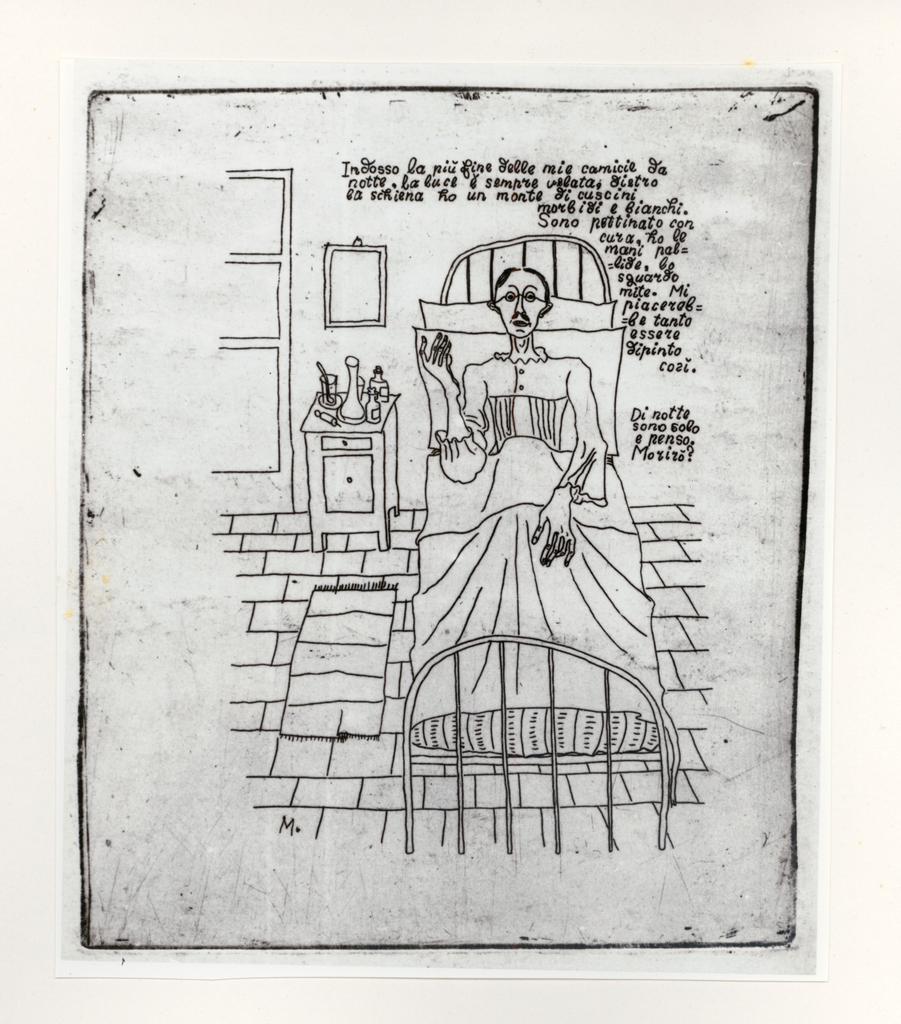 Indosso la più fine delle mie camicie da
notte. La luce è sempre velata, dietro
la schiena ho un monte di cuscini
morbidi e bianchi.
Sono pettinato con
cura, ho le
mani pal=
=lide, lo
sguardo
mite. Mi
piacereb=
=be tanto
essere
dipinto
così.
Di notte
sono solo
e penso.
Morirò?
M.